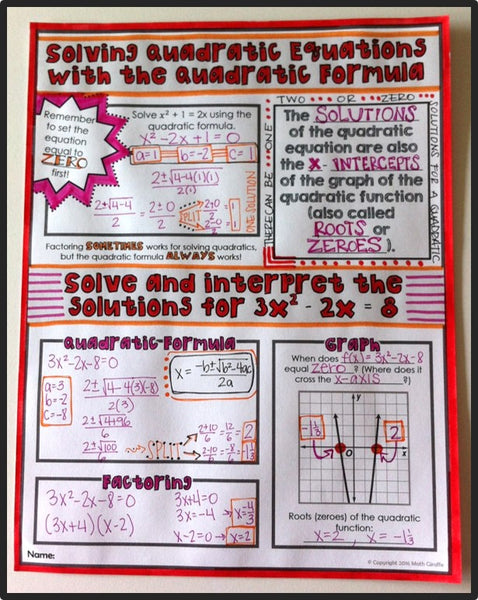 Solving Quadratic Equations
with the Quadratic Formula
Remember
to set the
equation
equal to
ZERO
first!
Solve x² + 1 = 2x using the
quadratic formula.
x² - 2x + 1 = 0
a=1 b=-2 c=1
2±√4-4(1)(1)
2(1)
2±√4-4
2
= 2±0
2
SPLIT
2+0
2
2-0
2
= 1
ONE SOLUTION
Factoring SOMETIMES works for solving quadratics,
but the quadratic formula ALWAYS works!
THERE CAN BE ONE
TWO OR ZERO
SOLUTIONS FOR A QUADRATIC
The SOLUTIONS
of the quadratic
equation are also
the X - INTERCEPTS
of the graph of the
quadratic function
(also called
ROOTS or
ZEROES).
Solve and interpret the
Solutions for 3x² - 2x = 8
Quadratic Formula
3x²-2x-8=0
a=3
b=-2
c=-8
x = -b±√b²-4ac
2a
2±√4-4(3)(-8)
2(3)
2±√4+96
6
2±√100
6
SPLIT
2+10
6
= 12
6
= 2
2-10
6
= -8
6
= -1⅓
Factoring
3x²-2x-8=0
(3x+4)(x-2)
3x+4=0
3x=-4 → x=-4/3
x-2=0 → x=2
Graph
When does f(x) = 3x²-2x-8
equal zero ? (Where does it
cross the x-axis ?)
y
-1⅓
2
O
x
Roots (zeroes) of the quadratic
function:
x=2 , x = -1⅓
Name:
© Copyright 2016 Math Giraffe